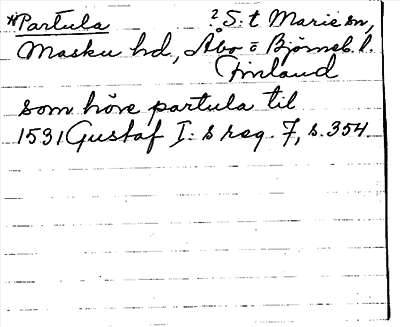 *Partula ? S:t Marie sn,
Masku hd, Åbo o Björneb. l.
Finland
som höre partula til
1531 Gustaf I:s reg. 7, s. 354.